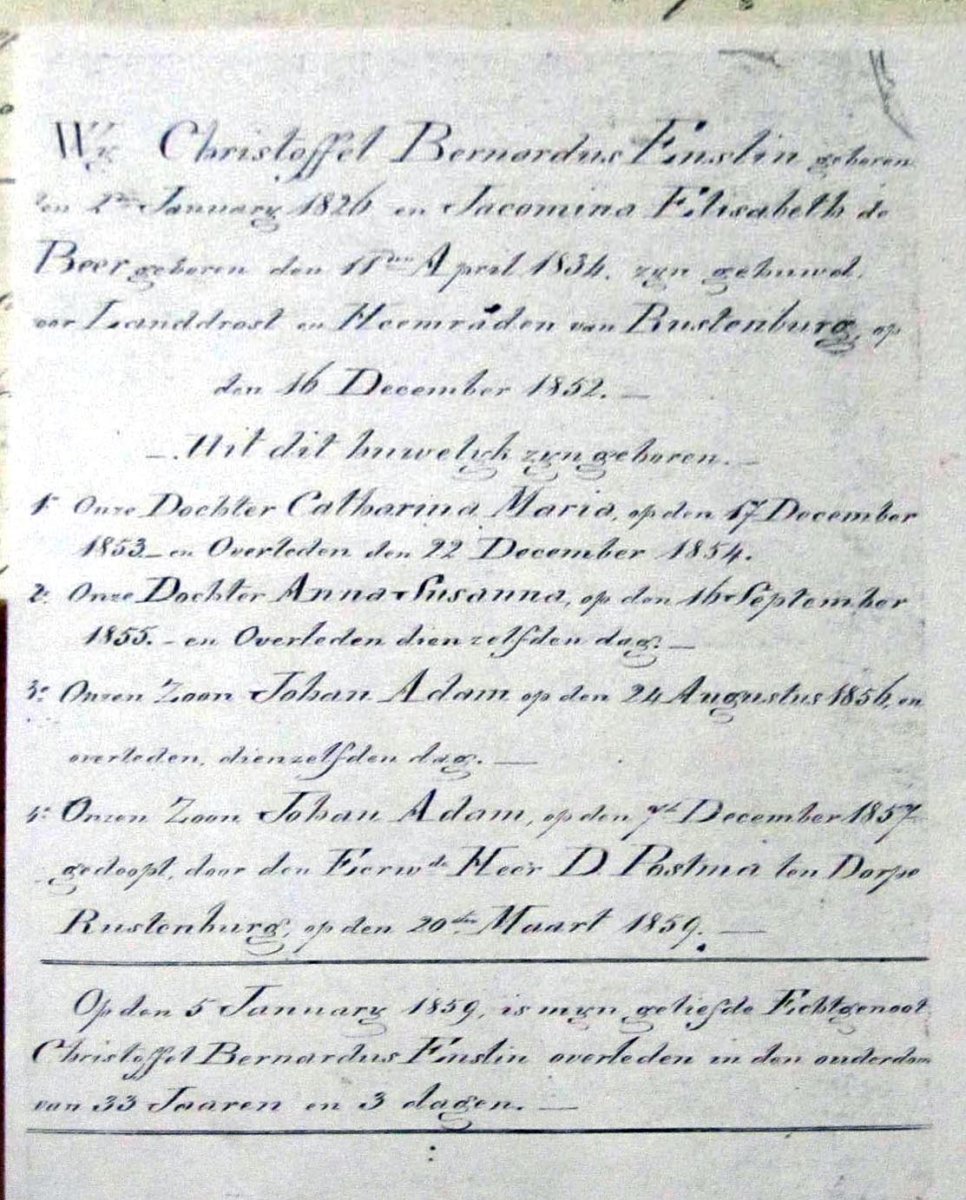 Wy Christoffel Bernardus Enslin geboren
den 2den January 1826 en Jacomina Elisabeth de
Beer geboren den 11den April 1834. zyn gehuwd.
voor Landdrost en Heemraden van Rustenburg, op
den 16 December 1852. —
— Uit dit huwelyk zyn geboren. —
1e Onze Dochter Catharina Maria, op den 17 December
1853 — en Overleden den 22 December 1854.
2e Onze Dochter Anna Susanna, op den 16 September
1855. — en Overleden dienzelfden dag. —
3e Onzen Zoon Johan Adam op den 24 Augustus 1856, en
overleden, dienzelfden dag. —
4e Onzen Zoon Johan Adam, op den 7de December 1857
gedoopt, door den Eerwde Heer D Postma ten Dorpe
Rustenburg, op den 20sten Maart 1859. —
Op den 5 January 1859, is myn geliefde Echtgenoot
Christoffel Bernardus Enslin overleden in den ouderdom
van 33 Jaaren en 3 dagen. —